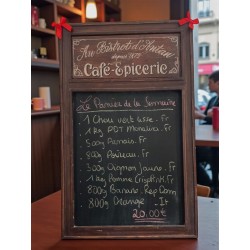 Au Bistrot d'Antan
depuis
Café-Epicerie
Le Panier de la Semaine
. 1 Chou vert lisse. Fr
. 1 kg PDT Monalisa. Fr
. 500g Panais. Fr
. 800g Poireau. Fr
. 300g Oignon jaune. Fr
. 1 kg Pomme Fr
. 800g Banane. Rep Dom
. 800g Orange. It
20.00€